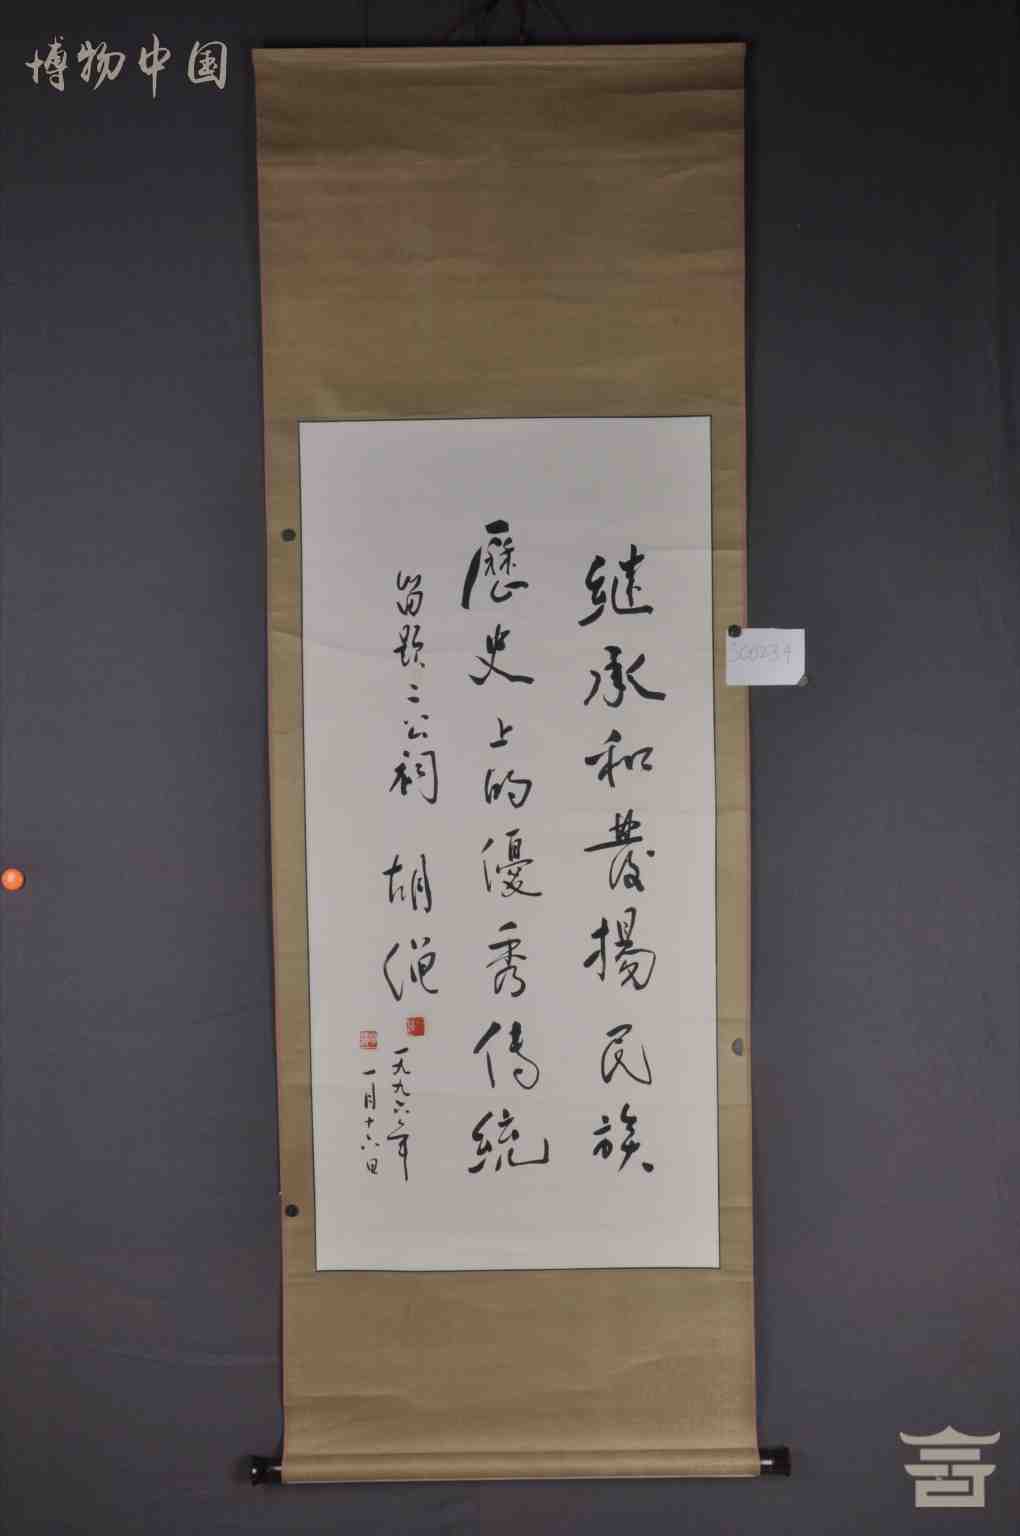 博物中国
继承和發揚民族
歷史上的優秀传統
留题二公祠 胡绳
一九九六年
一月十六日
SC0234